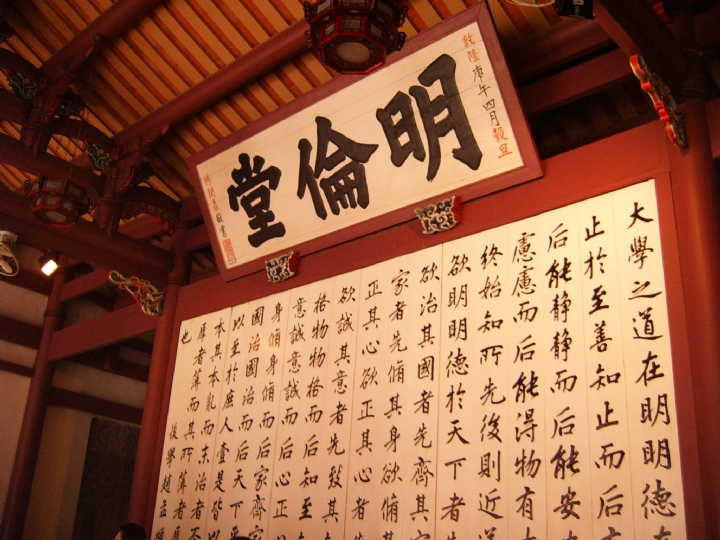 乾隆庚午四月穀旦
明倫堂
楊開鼎敬書
大學之道在明明德在
止於至善知止而后
后能静静而后能安
慮慮而后能得物有
終始知所先後則近道
欲明明德於天下者先
欲治其國者先齊其
家者先脩其身欲脩其
正其心欲正其心者先
欲誠其意者先致其
格物物格而后知至
意誠意誠而后心正
身脩身脩而后家齊家
國治國治而后天下平
以至於庶人壹是皆以
本其本亂而末治者否
厚者薄而其所薄者厚
也
後學趙孟